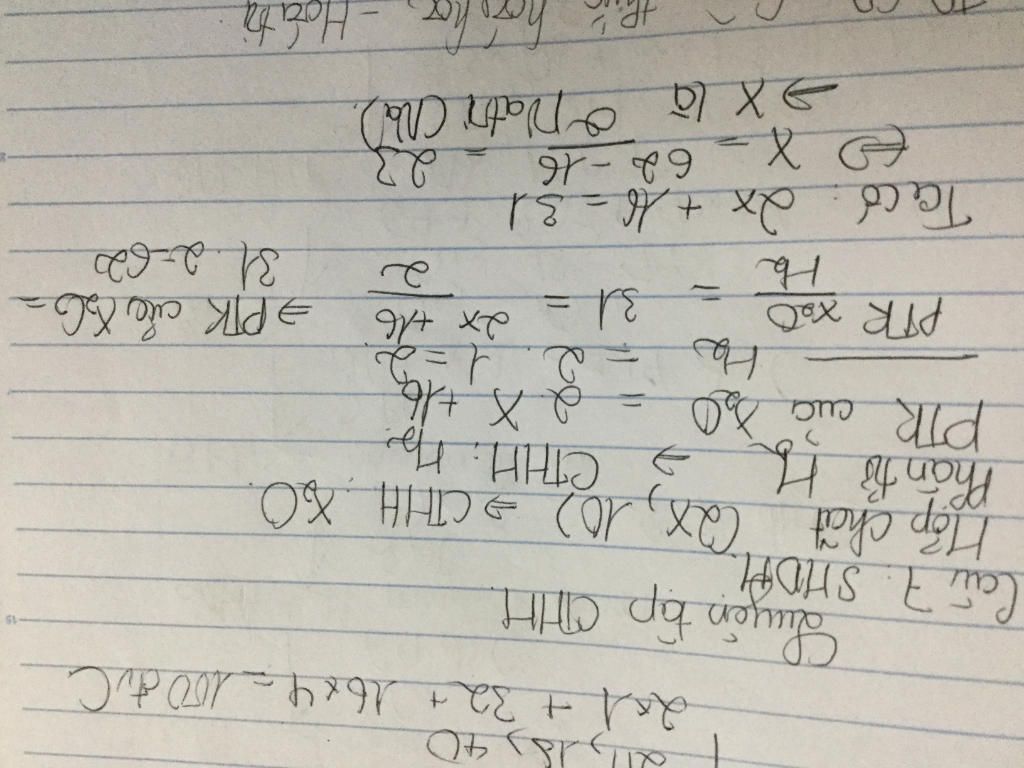 2H, 1S, 4O
2x1 + 32 + 16x4 = 100 đvC
Luyện tập CTHH
Câu 7: SHDH
Hợp chất (2X, 1O) ⇒ CTHH: X₂O
Phân tử H₂ ⇒ CTHH: H₂
PTK của X₂O = 2.X + 16
H₂ = 2.1 = 2
PTK X₂O / H₂ = 31 = 2x + 16 / 2 ⇒ PTK của X₂O =
31.2 = 62
Ta có: 2x + 16 = 31
⇔ X = 62 - 16 / 2 = 23
⇒ X là Natri (Na)
thức hoá học - Hoá trị